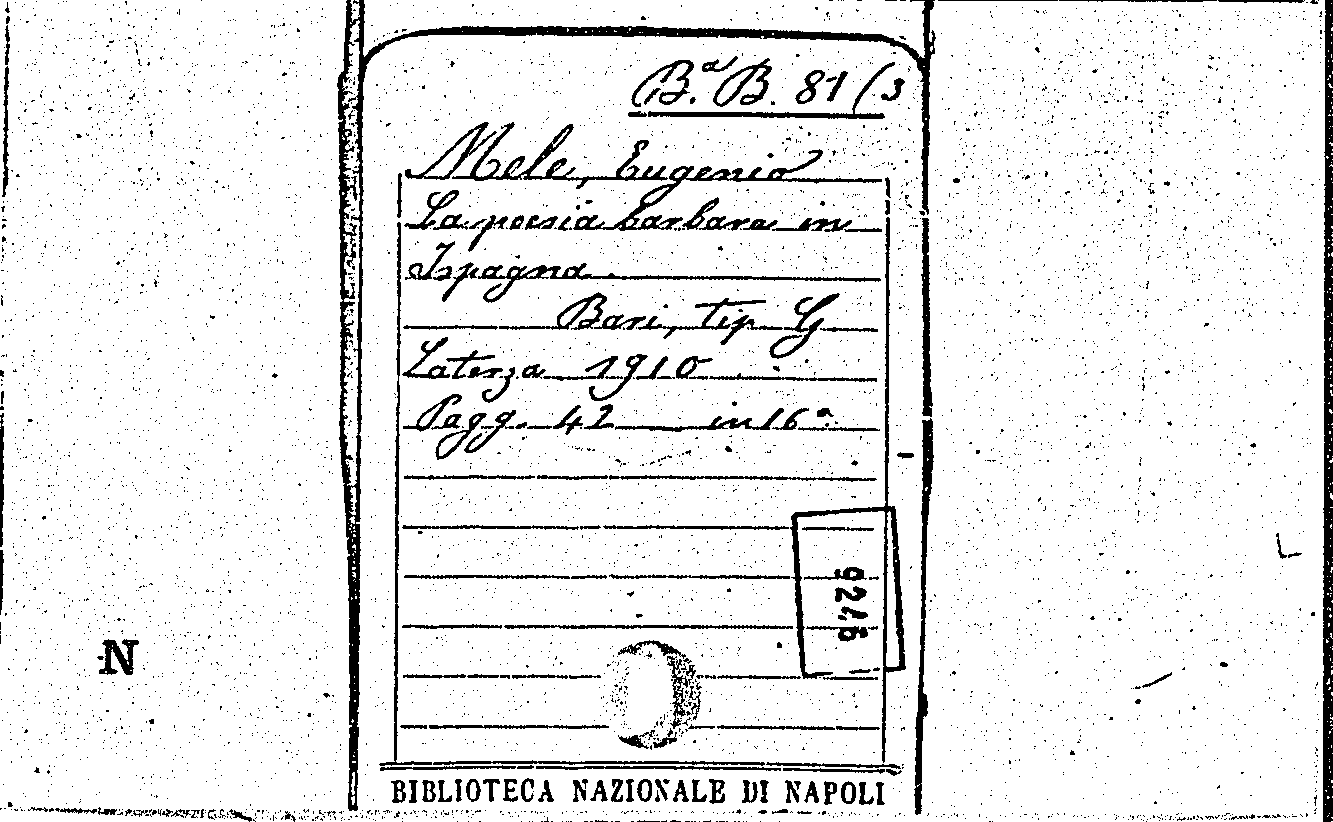 Bᵃ. B. 81 (3
Mele, Eugenio
La poesia barbara in
Ispagna.
Bari, tip. G
Laterza 1910
Pagg. 42 in 16°
N
BIBLIOTECA NAZIONALE DI NAPOLI